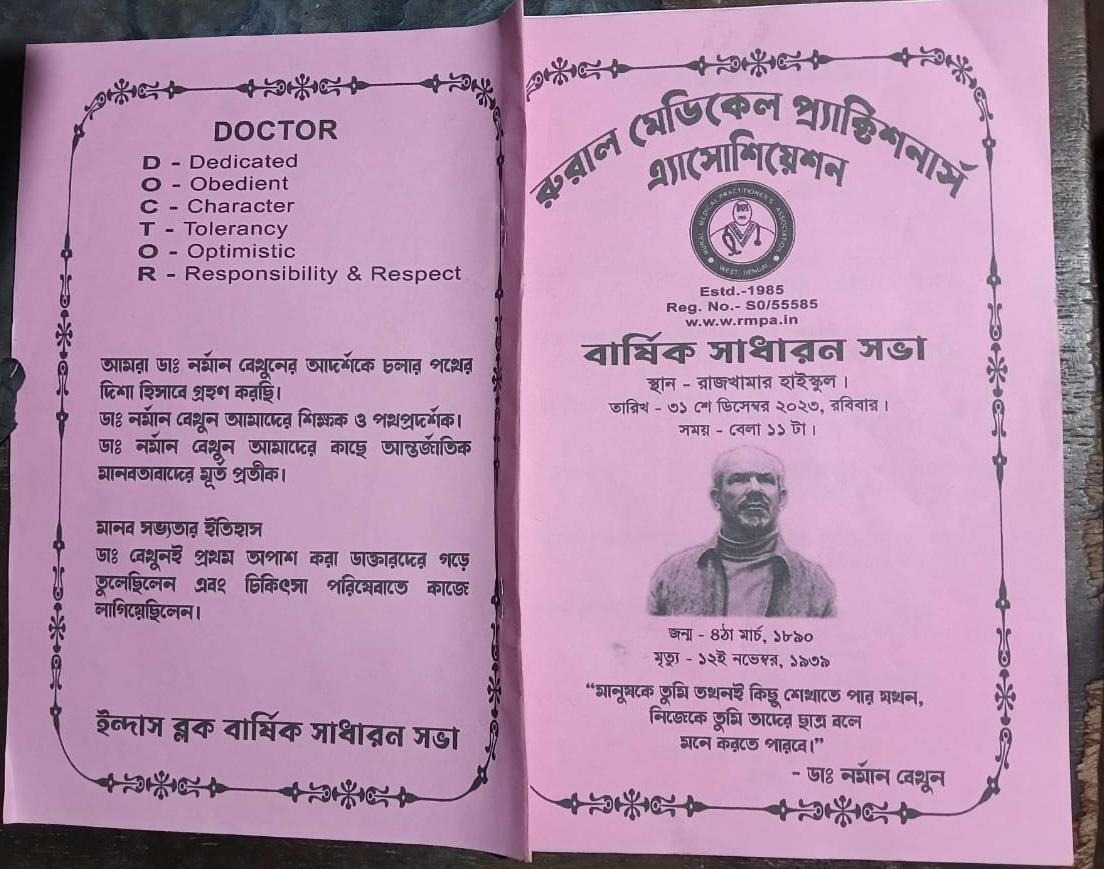 DOCTOR
D - Dedicated
O - Obedient
C - Character
T - Tolerancy
O - Optimistic
R - Responsibility & Respect
আমরা ডাঃ নর্মান বেথুনের আদর্শকে চলার পথের
দিশা হিসাবে গ্রহণ করছি।
ডাঃ নর্মান বেথুন আমাদের শিক্ষক ও পথপ্রদর্শক।
ডাঃ নর্মান বেথুন আমাদের কাছে আন্তর্জাতিক
মানবতাবাদের মূর্ত প্রতীক।
মানব সভ্যতার ইতিহাস
ডাঃ বেথুনই প্রথম অপাশ করা ডাক্তারদের গড়ে
তুলেছিলেন এবং চিকিৎসা পরিষেবাতে কাজে
লাগিয়েছিলেন।
ইন্দাস ব্লক বার্ষিক সাধারন সভা
রুরাল মেডিকেল প্র্যাক্টিশনার্স
এ্যাসোশিয়েশন
RURAL MEDICAL PRACTITIONER'S ASSOCIATION
WEST BENGAL
Estd.-1985
Reg. No.- S0/55585
w.w.w.rmpa.in
বার্ষিক সাধারন সভা
স্থান - রাজখামার হাইস্কুল।
তারিখ - ৩১ শে ডিসেম্বর ২০২৩, রবিবার।
সময় - বেলা ১১ টা।
জন্ম - ৪ঠা মার্চ, ১৮৯০
মৃত্যু - ১২ই নভেম্বর, ১৯৩৯
“মানুষকে তুমি তখনই কিছু শেখাতে পার যখন,
নিজেকে তুমি তাদের ছাত্র বলে
মনে করতে পারবে।”
- ডাঃ নর্মান বেথুন